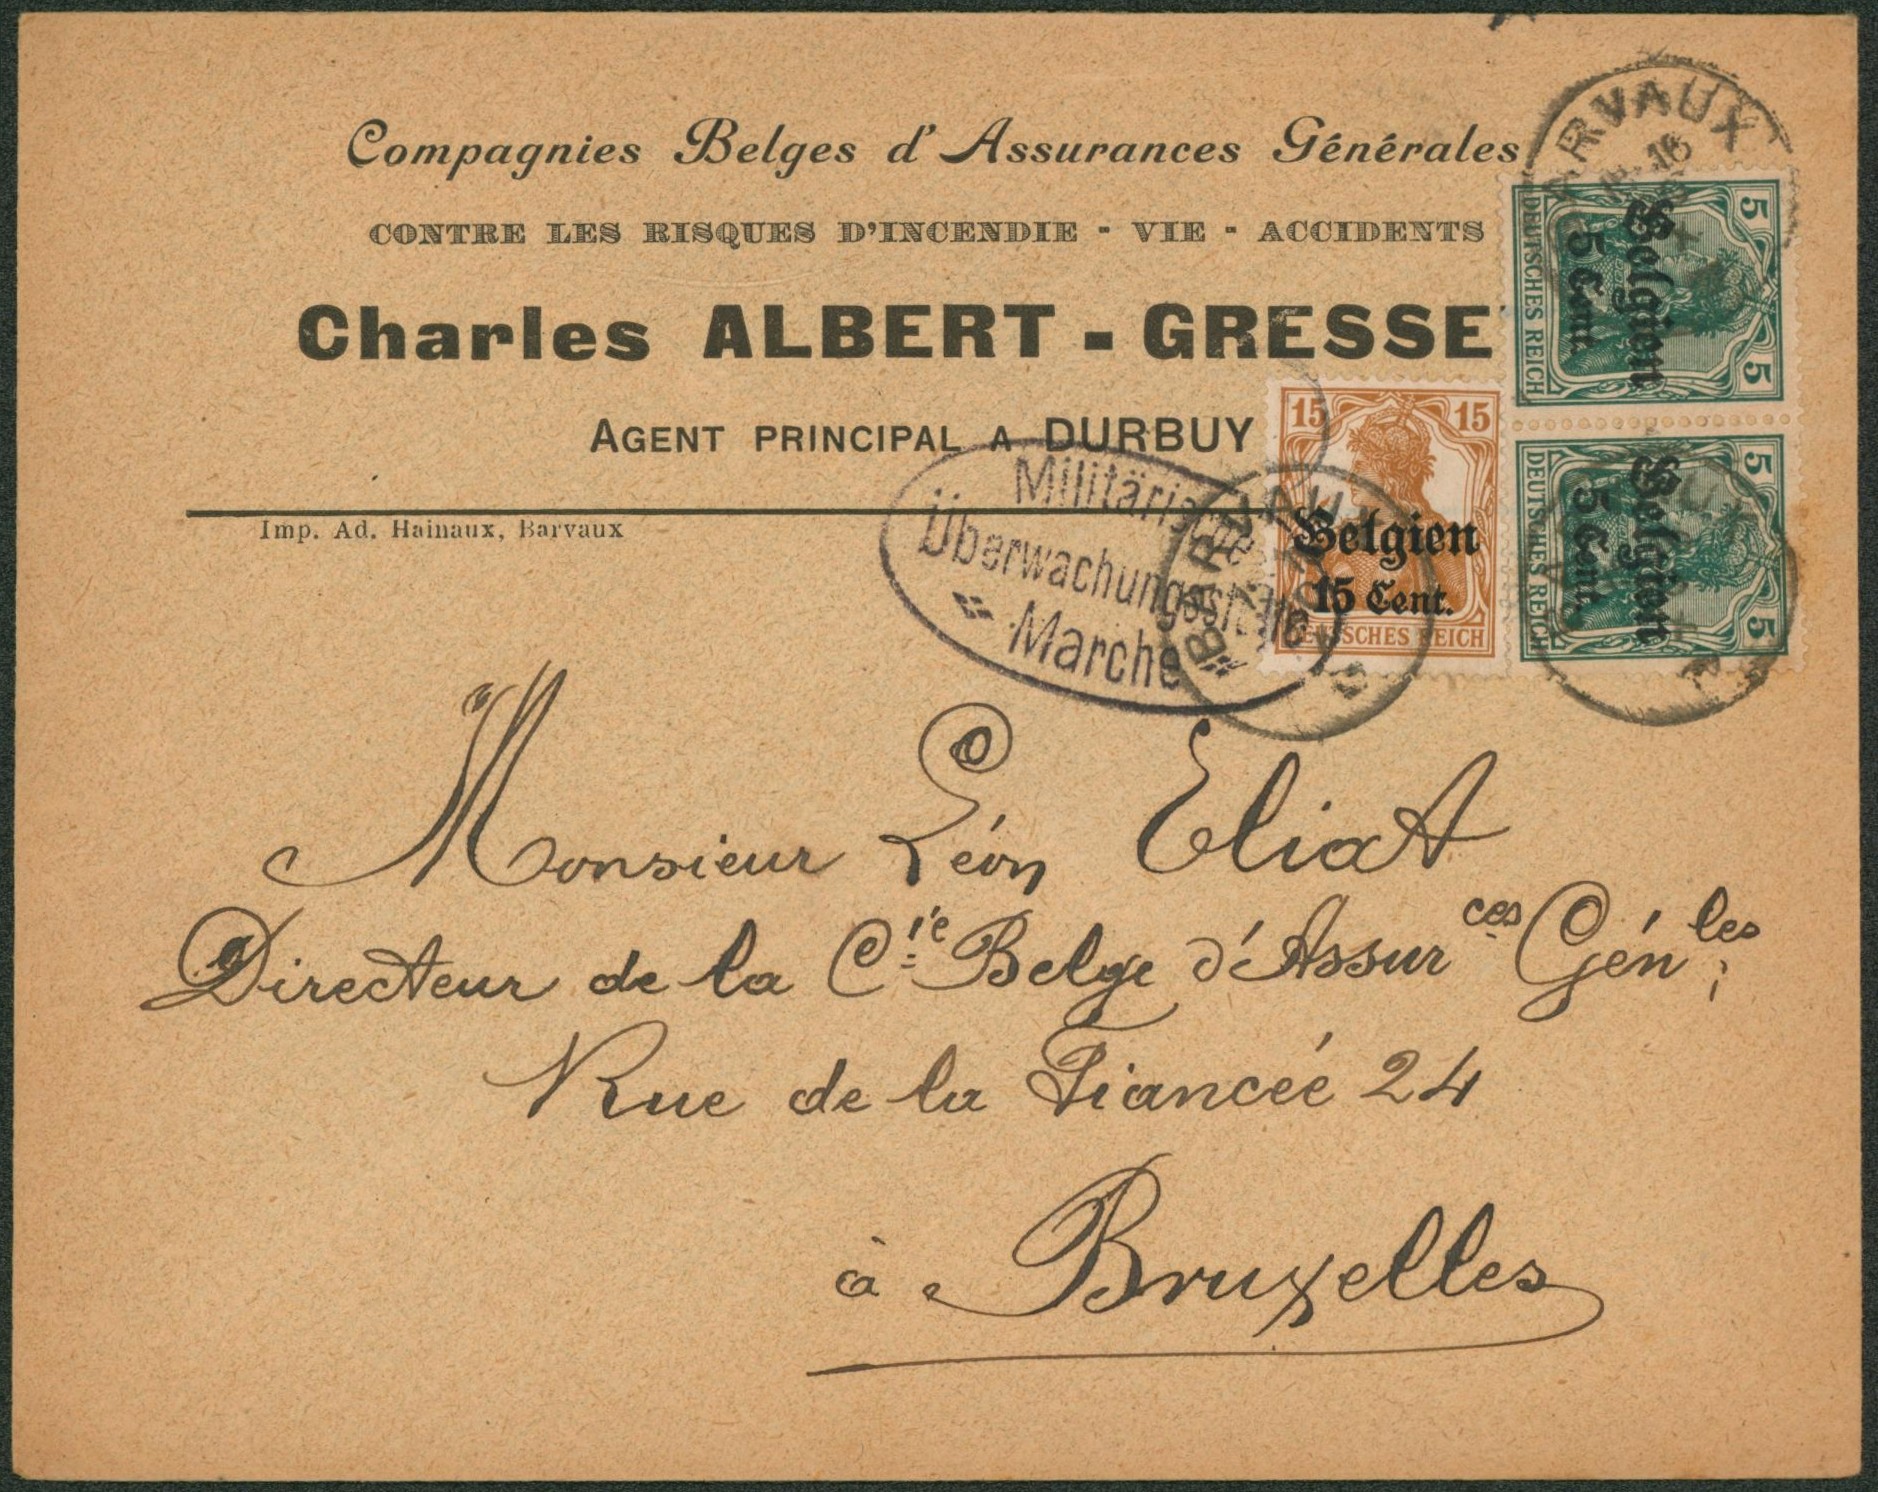 Compagnies Belges d'Assurances Générales
CONTRE LES RISQUES D'INCENDIE - VIE - ACCIDENTS
Charles ALBERT - GRESSE
AGENT PRINCIPAL A DURBUY
Imp. Ad. Hainaux, Barvaux
ARVAUX
16
5 5
Belgien
5 Cent.
DEUTSCHES REICH
5 5
Belgien
5 Cent.
DEUTSCHES REICH
15 15
Belgien
15 Cent.
REICH
BARVAU
Militärische
Überwachungsstelle
Marche
Monsieur Léon Eliat
Directeur de la Cie Belge d'Assurces Génles,
Rue de la Fiancée 24
à Bruxelles